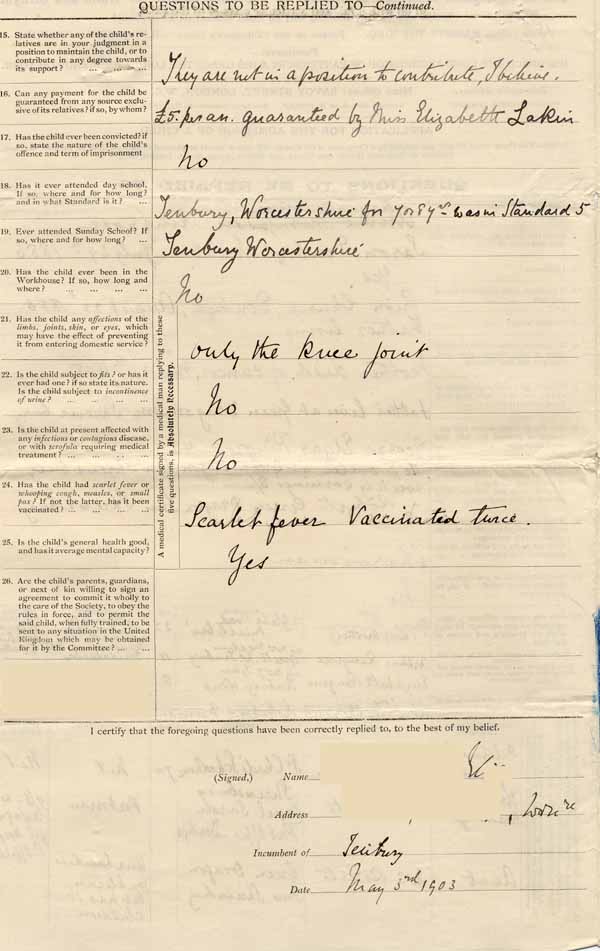 QUESTIONS TO BE REPLIED TO—Continued.
15. State whether any of the child's re-
latives are in your judgment in a
position to maintain the child, or to
contribute in any degree towards
its support? ... ... ...
They are not in a position to contribute, I believe.
16. Can any payment for the child be
guaranteed from any source exclu-
sive of its relatives? if so, by whom?
£5. per an. guaranteed by Miss Elizabeth Lakin
17. Has the child ever been convicted? if
so, state the nature of the child's
offence and term of imprisonment
No
18. Has it ever attended day school.
If so, where and for how long?
and in what Standard is it? ...
Tenbury, Worcestershire for 7 or 8 yrs was in Standard 5
19. Ever attended Sunday School? If
so, where and for how long? ...
Tenbury Worcestershire
20. Has the child ever been in the
Workhouse? If so, how long and
where? ... ... ... ...
No
A medical certificate signed by a medical man replying to these
five questions, is Absolutely Necessary.
21. Has the child any affections of the
limbs, joints, skin, or eyes, which
may have the effect of preventing
it from entering domestic service?
only the knee joint
22. Is the child subject to fits? or has it
ever had one? if so state its nature.
Is the child subject to incontinence
of urine? ... ... ... ...
No
23. Is the child at present affected with
any infectious or contagious disease,
or with scrofula requiring medical
treatment? ... ... ... ...
No
24. Has the child had scarlet fever or
whooping cough, measles, or small
pox? If not the latter, has it been
vaccinated? ... ... ... ...
Scarlet fever Vaccinated twice.
25. Is the child's general health good,
and has it average mental capacity?
Yes
26. Are the child's parents, guardians,
or next of kin willing to sign an
agreement to commit it wholly to
the care of the Society, to obey the
rules in force, and to permit the
said child, when fully trained, to be
sent to any situation in the United
Kingdom which may be obtained
for it by the Committee? ... ...
I certify that the foregoing questions have been correctly replied to, to the best of my belief.
(Signed,) Name
Address
Incumbent of Tenbury
Date May 3rd 1903